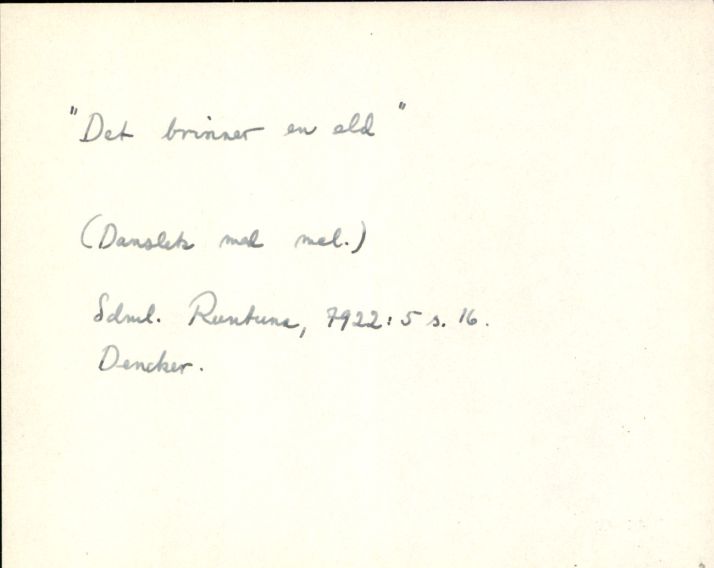 "Det brinner en eld"
(Danslek med mel.)
Sdml. Runtuna, 7922:5 s. 16.
Dencker.